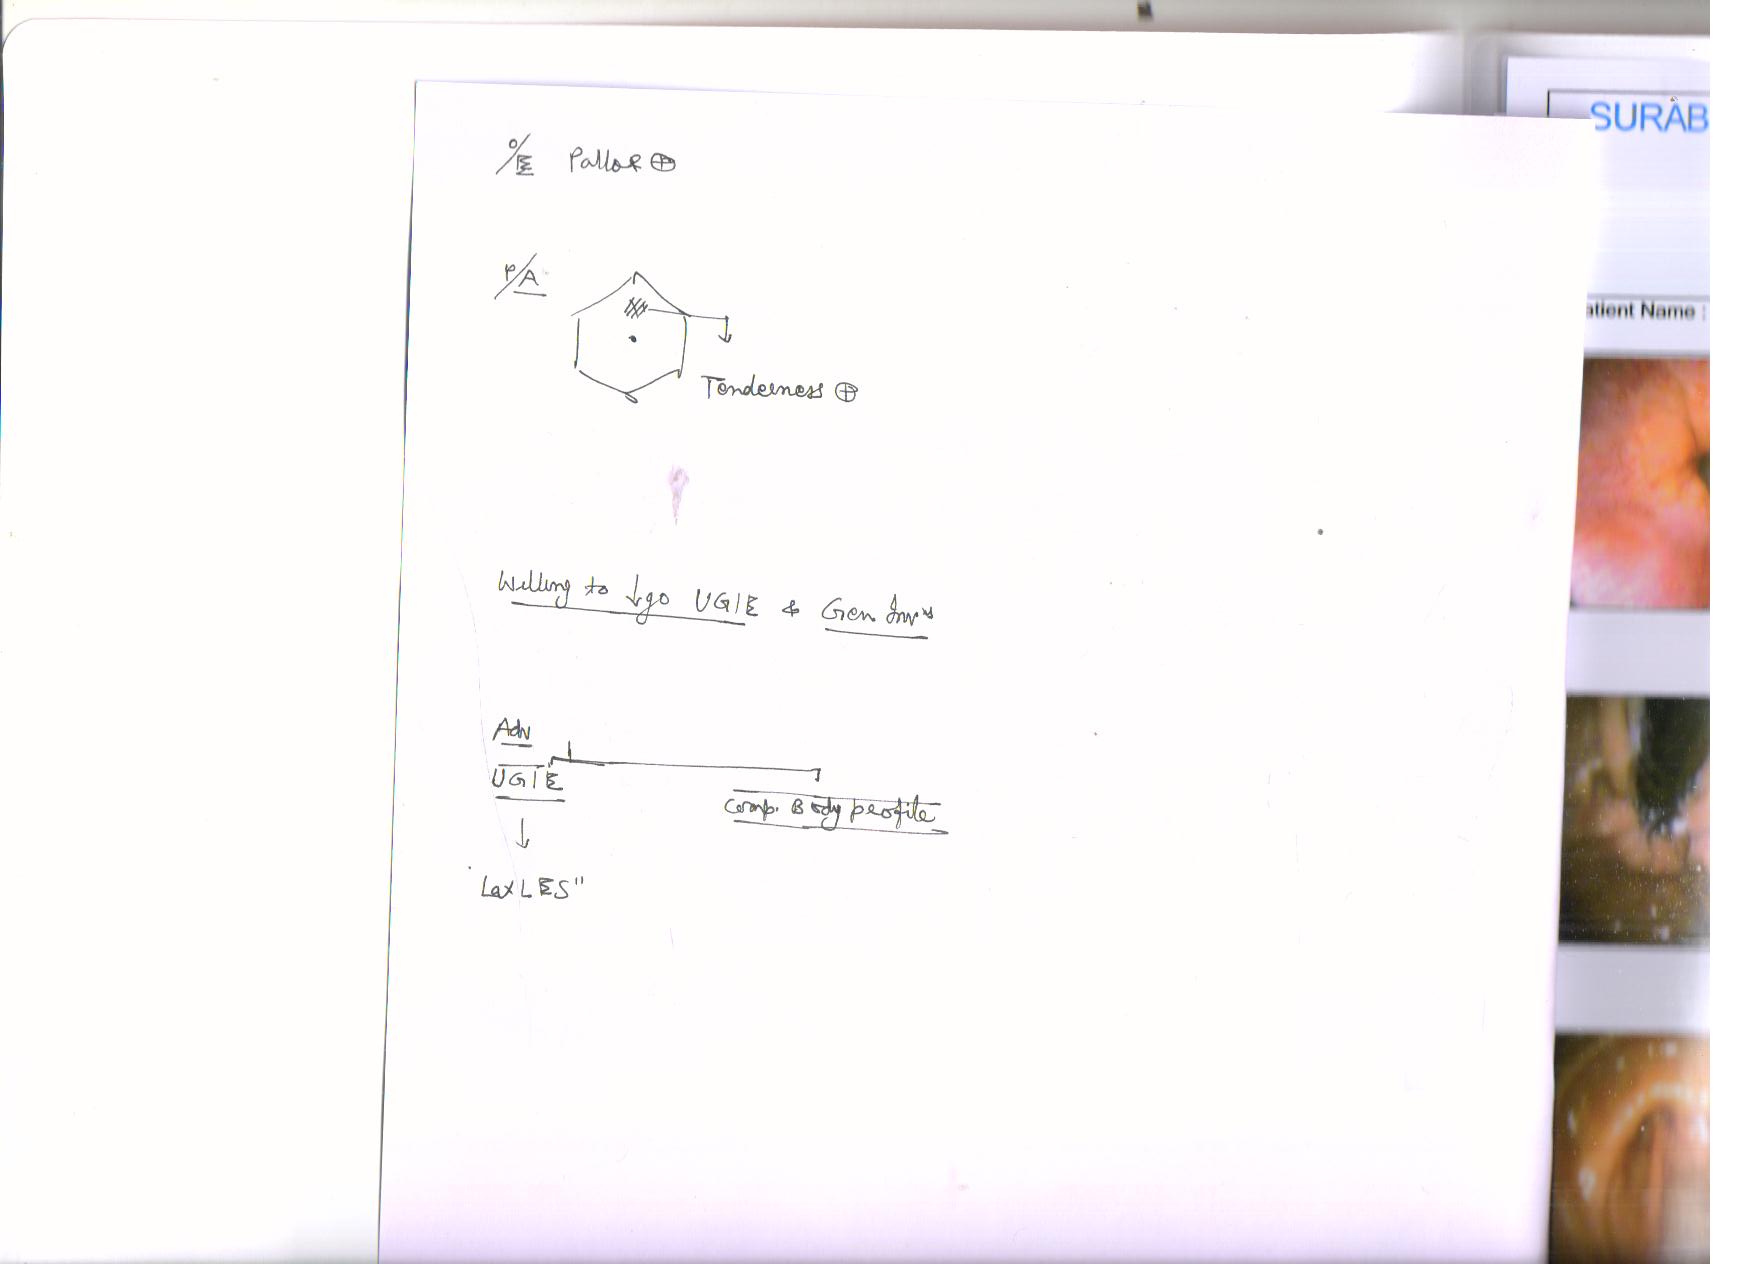 O/E Pallor ⊕
P/A
Tenderness ⊕
Willing to ↓go UGIE & Gen Invs
Adv
UGIE
Comp. Body profile
↓
"Lax LES"
SURAB
atient Name :